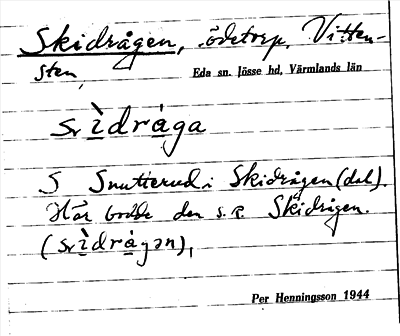 Skidrågen, ödetorp. Vitten-
sten, Eda sn. Jösse hd, Värmlands län
sìdràga
S Snutterud i Skidrågen (dal).
Här bodde den s.k. Skidrågen.
(sìdràgən),
Per Henningsson 1944